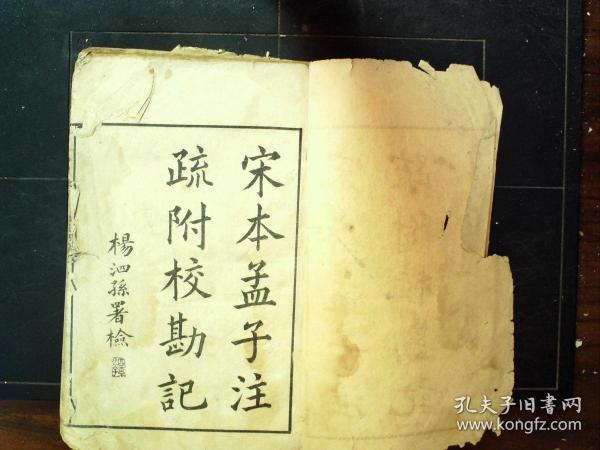 宋本孟子注
疏附校勘記
楊泗孫署檢
孔夫子旧書网
www.kongfz.com